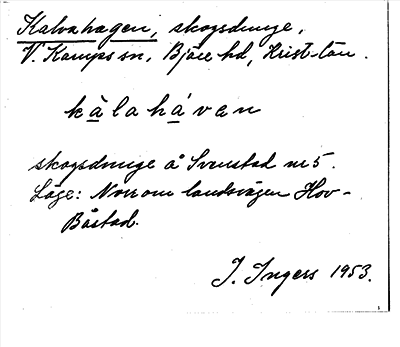 Kalvahagen, skogsdunge,
V. Karups sn, Bjäre hd, Krist-län.
kàlahávan
skogsdunge å Svenstad nr 5.
Läge: Norr om landsvägen Hov-
Båstad.
I. Ingers 1953.